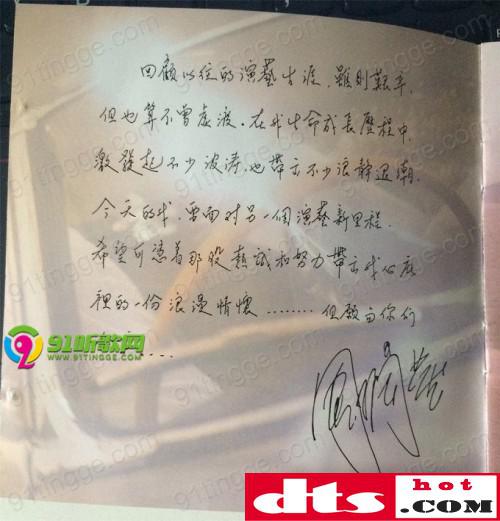 回顧以往的演藝生涯，雖則艱辛，
但也算不曾虛渡。在我生命成長歷程中，
激發起不少波濤，也帶來不少浪靜退潮。
今天的我，要面對另一個演藝新里程，
希望可憑着那股熱誠和努力帶出我心底
裡的一份浪漫情懷………但願由你們
……
91听歌网
WWW.91TINGGE.COM
91tingge.com
dts
hot
.COM